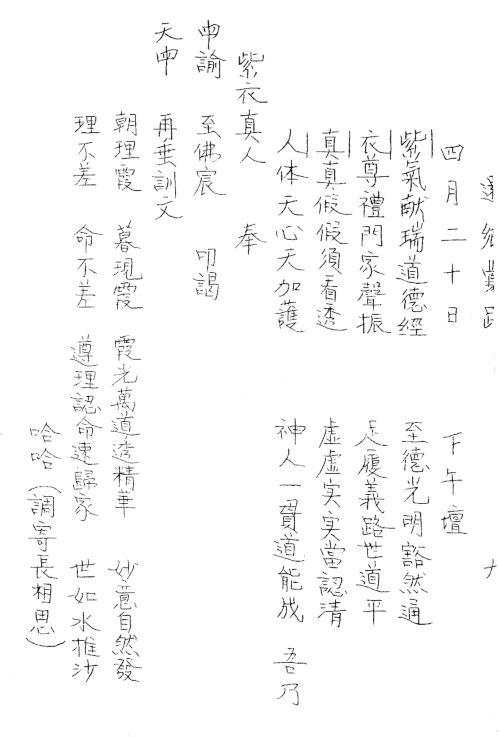 四月二十日　下午壇
紫氣献瑞道德經　至德光明豁然通
衣尊禮門家聲振　足履義路世道平
真真假假須看透　虛虛实实當認清
人体天心天加護　神人一貫道能成　吾乃
紫衣真人　奉
申諭　至佛宸　叩謁
天申　再垂訓文
朝理霞　暮現霞　霞光萬道透精華　妙意自然發
理不差　命不差　遵理認命速歸家　世如水推沙
哈哈（調寄長相思）